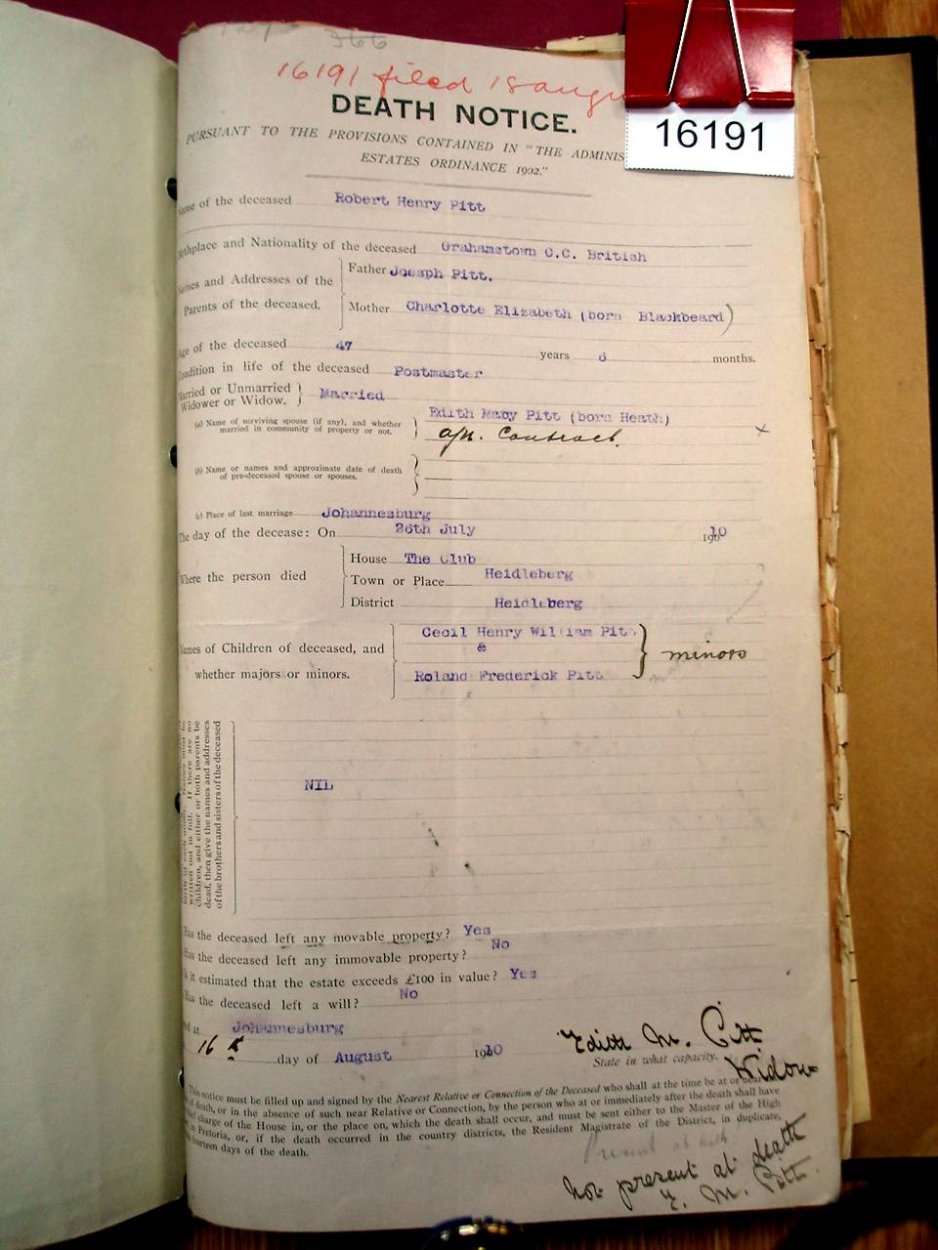 366
16191 filed 18 augu
16191
DEATH NOTICE.
PURSUANT TO THE PROVISIONS CONTAINED IN "THE ADMINIS
ESTATES ORDINANCE 1902."
ame of the deceased Robert Henry Pitt
irthplace and Nationality of the deceased Grahamstown C.C. British
ames and Addresses of the Parents of the deceased.
Father Joseph Pitt.
Mother Charlotte Elizabeth (born Blackbeard)
Age of the deceased 47 years 6 months.
Condition in life of the deceased Postmaster
Married or Unmarried Widower or Widow. } Married
(a) Name of surviving spouse (if any), and whether married in community of property or not. } Edith Maby Pitt (born Heath)
a/n. Contract. x
(b) Name or names and approximate date of death of pre-deceased spouse or spouses.
(c) Place of last marriage Johannesburg
The day of the decease: On 26th July 1910
Where the person died
House The Club
Town or Place Heidleberg
District Heidleberg
ames of Children of deceased, and whether majors or minors.
Cecil Henry William Pitt
&
Roland Frederick Pitt
} minors
written out in full. If there are no
children, and either or both parents be
dead, then give the names and addresses
of the brothers and sisters of the deceased
NIL
Has the deceased left any movable property? Yes
Has the deceased left any immovable property? No
Is it estimated that the estate exceeds £100 in value? Yes
Has the deceased left a will? No
ed at Johannesburg
16th day of August 1910
Edith M. Pitt
State in what capacity.
Widow
This notice must be filled up and signed by the Nearest Relative or Connection of the Deceased who shall at the time be at or near
death, or in the absence of such near Relative or Connection, by the person who at or immediately after the death shall have
charge of the House in, or the place on, which the death shall occur, and must be sent either to the Master of the High
Pretoria, or, if the death occurred in the country districts, the Resident Magistrate of the District, in duplicate,
fourteen days of the death.
Present at
Not present at death
E. M. Pitt.